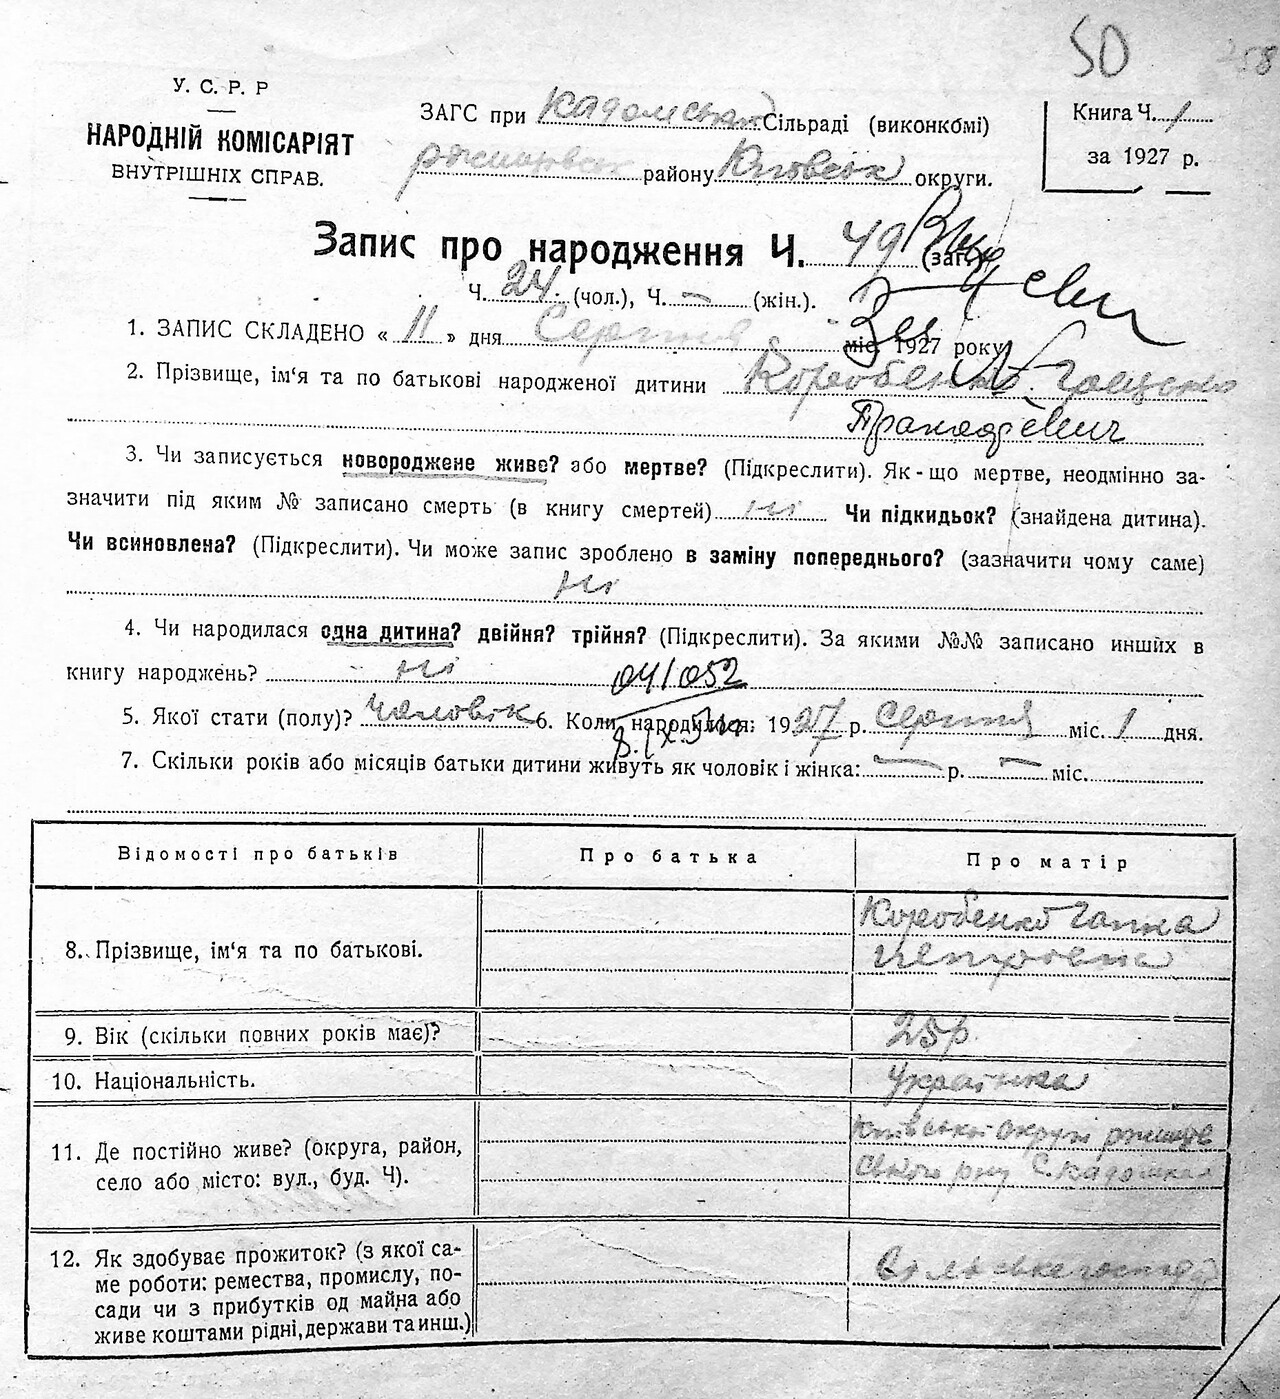 50
258
У. С. Р. Р
НАРОДНІЙ КОМІСАРІЯТ
ВНУТРІШНІХ СПРАВ.
ЗАГС при Кадомській Сільраді (виконкомі)
району Київськ округи.
Книга Ч. 1
за 1927 р.
Запис про народження Ч. 49 (заг.)
Ч. 24 (чол.), Ч. – (жін.).
1. ЗАПИС СКЛАДЕНО « 11 » дня Серпня міс. 1927 року
2. Прізвище, ім‘я та по батькові народженої дитини Коробенко
3. Чи записується новороджене живе? або мертве? (Підкреслити). Як-що мертве, неодмінно за-
значити під яким № записано смерть (в книгу смертей) ні Чи підкидьок? (знайдена дитина).
Чи всиновлена? (Підкреслити). Чи може запис зроблено в заміну попереднього? (зазначити чому саме)
ні
4. Чи народилася одна дитина? двійня? трійня? (Підкреслити). За якими №№ записано инших в
книгу народжень? ні
041052
5. Якої стати (полу)? Чоловік 6. Коли народилося: 1927 р. Серпня міс. 1 дня.
7. Скільки років або місяців батьки дитини живуть як чоловік і жінка: — р. — міс.
Відомості про батьків
Про батька
Про матір
8. Прізвище, ім‘я та по батькові.
Коробенко Гапка
Петровна
9. Вік (скільки повних років має)?
25 р.
10. Національність.
Українка
11. Де постійно живе? (округа, район,
село або місто: вул., буд. Ч).
Київської округи
с. Кадомка
12. Як здобуває прожиток? (з якої са-
ме роботи: ремества, промислу, по-
сади чи з прибутків од майна або
живе коштами рідні, держави та инш.)